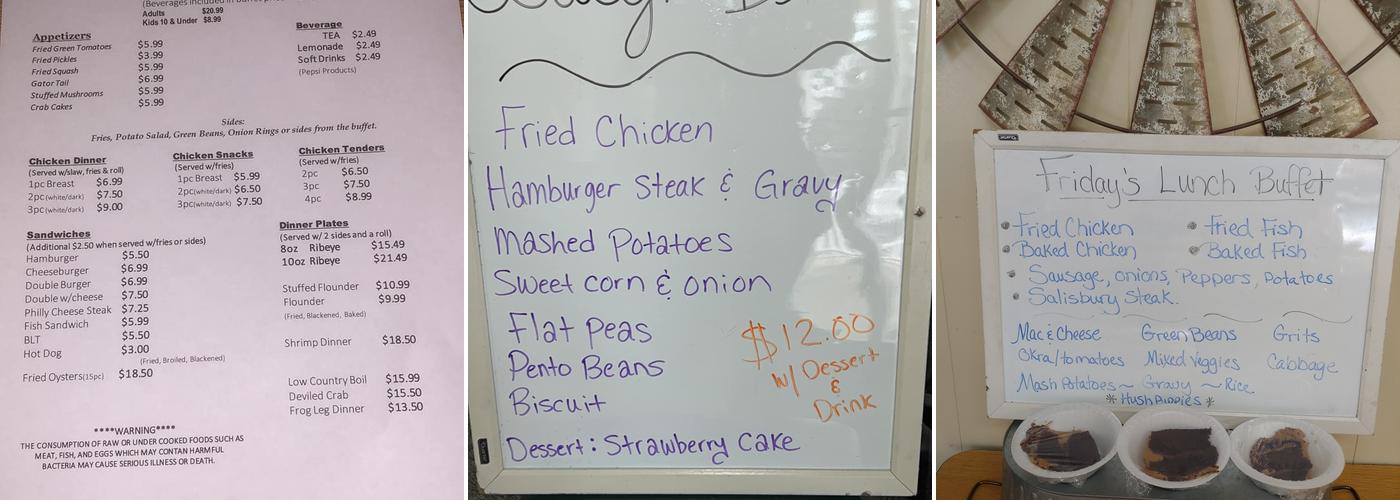 Adults $20.99
Kids 10 & Under $8.99
Appetizers
Fried Green Tomatoes $5.99
Fried Pickles $3.99
Fried Squash $5.99
Gator Tail $6.99
Stuffed Mushrooms $5.99
Crab Cakes $5.99
Beverage
TEA $2.49
Lemonade $2.49
Soft Drinks $2.49
(Pepsi Products)
Sides:
Fries, Potato Salad, Green Beans, Onion Rings or sides from the buffet.
Chicken Dinner
(Served w/slaw, fries & roll)
1pc Breast $6.99
2pc(white/dark) $7.50
3pc(white/dark) $9.00
Chicken Snacks
(Served w/fries)
1pc Breast $5.99
2pc(white/dark) $6.50
3pc(white/dark) $7.50
Chicken Tenders
(Served w/fries)
2pc $6.50
3pc $7.50
4pc $8.99
Sandwiches
(Additional $2.50 when served w/fries or sides)
Hamburger $5.50
Cheeseburger $6.99
Double Burger $6.99
Double w/cheese $7.50
Philly Cheese Steak $7.25
Fish Sandwich $5.99
BLT $5.50
Hot Dog $3.00
(Fried, Broiled, Blackened)
Fried Oysters(15pc) $18.50
Dinner Plates
(Served w/ 2 sides and a roll)
8oz Ribeye $15.49
10oz Ribeye $21.49
Stuffed Flounder $10.99
Flounder $9.99
(Fried, Blackened, Baked)
Shrimp Dinner $18.50
Low Country Boil $15.99
Deviled Crab $15.50
Frog Leg Dinner $13.50
****WARNING****
THE CONSUMPTION OF RAW OR UNDER COOKED FOODS SUCH AS
MEAT, FISH, AND EGGS WHICH MAY CONTAN HARMFUL
BACTERIA MAY CAUSE SERIOUS ILLNESS OR DEATH.
Fried Chicken
Hamburger Steak & Gravy
Mashed Potatoes
Sweet corn & onion
Flat Peas
Pento Beans
Biscuit
Dessert: Strawberry Cake
$12.00
w/ Dessert
&
Drink
Friday's Lunch Buffet
Fried Chicken Fried Fish
Baked Chicken Baked Fish
Sausage, onions, Peppers, Potatoes
Salisbury Steak.
Mac & Cheese Green Beans Grits
Okra/tomatoes Mixed Veggies Cabbage
Mash Potatoes ~ Gravy ~ Rice
* Hush Puppies *